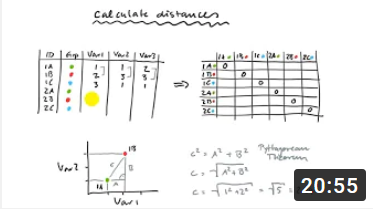 Calculate distances
ID Grp Var1 Var2 Var3
1A 1 1 2
1B 2 3 3
1C 3 1 1
2A
2B
2C
⇒
1A 1B 1C 2A 2B 2C
1A 0
1B 0
1C 0
2A 0
2B 0
2C 0
Var2
1B
C
B
1A
A
Var1
c² = A² + B² Pythagorean
Theorem
c = √A² + B²
c = √1² + 2² = √5 =
20:55